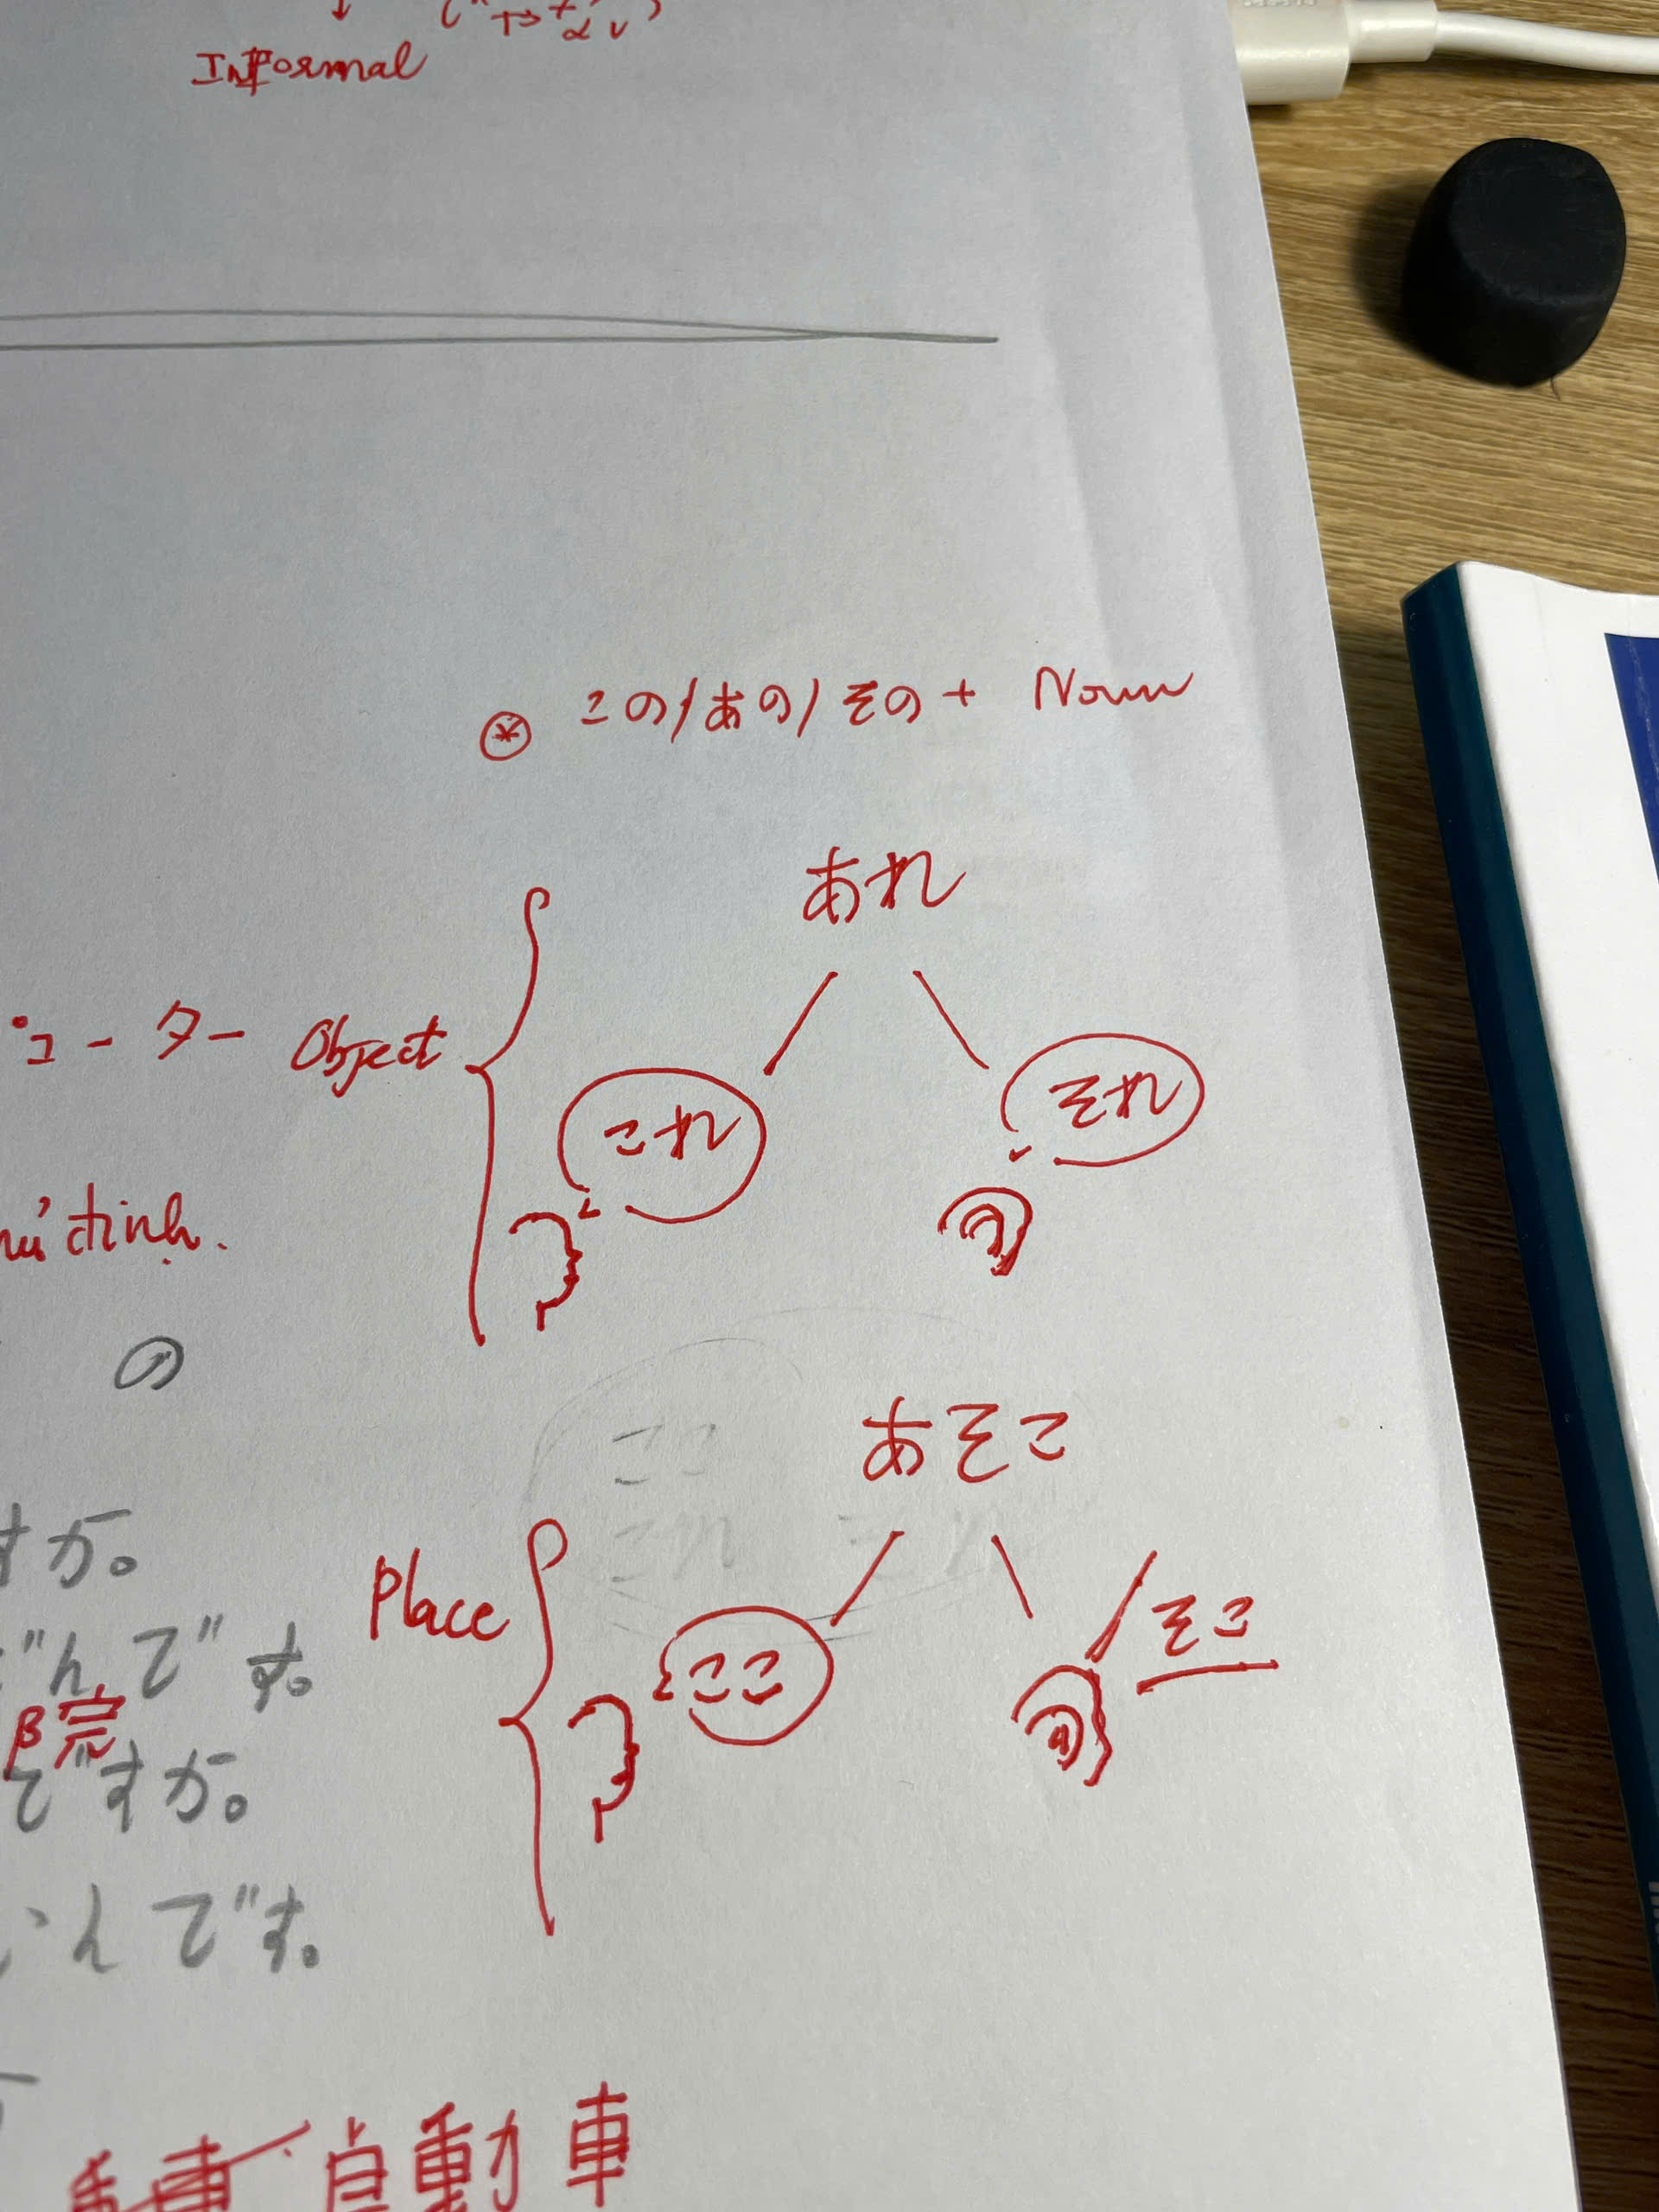 Informal
この/あの/その + Noun
あれ
ューター Object
これ それ
định.
の
ここ
あそこ
これ それ
すか。
Place
ここ そこ
んです。
ですか。
んです。
自動車